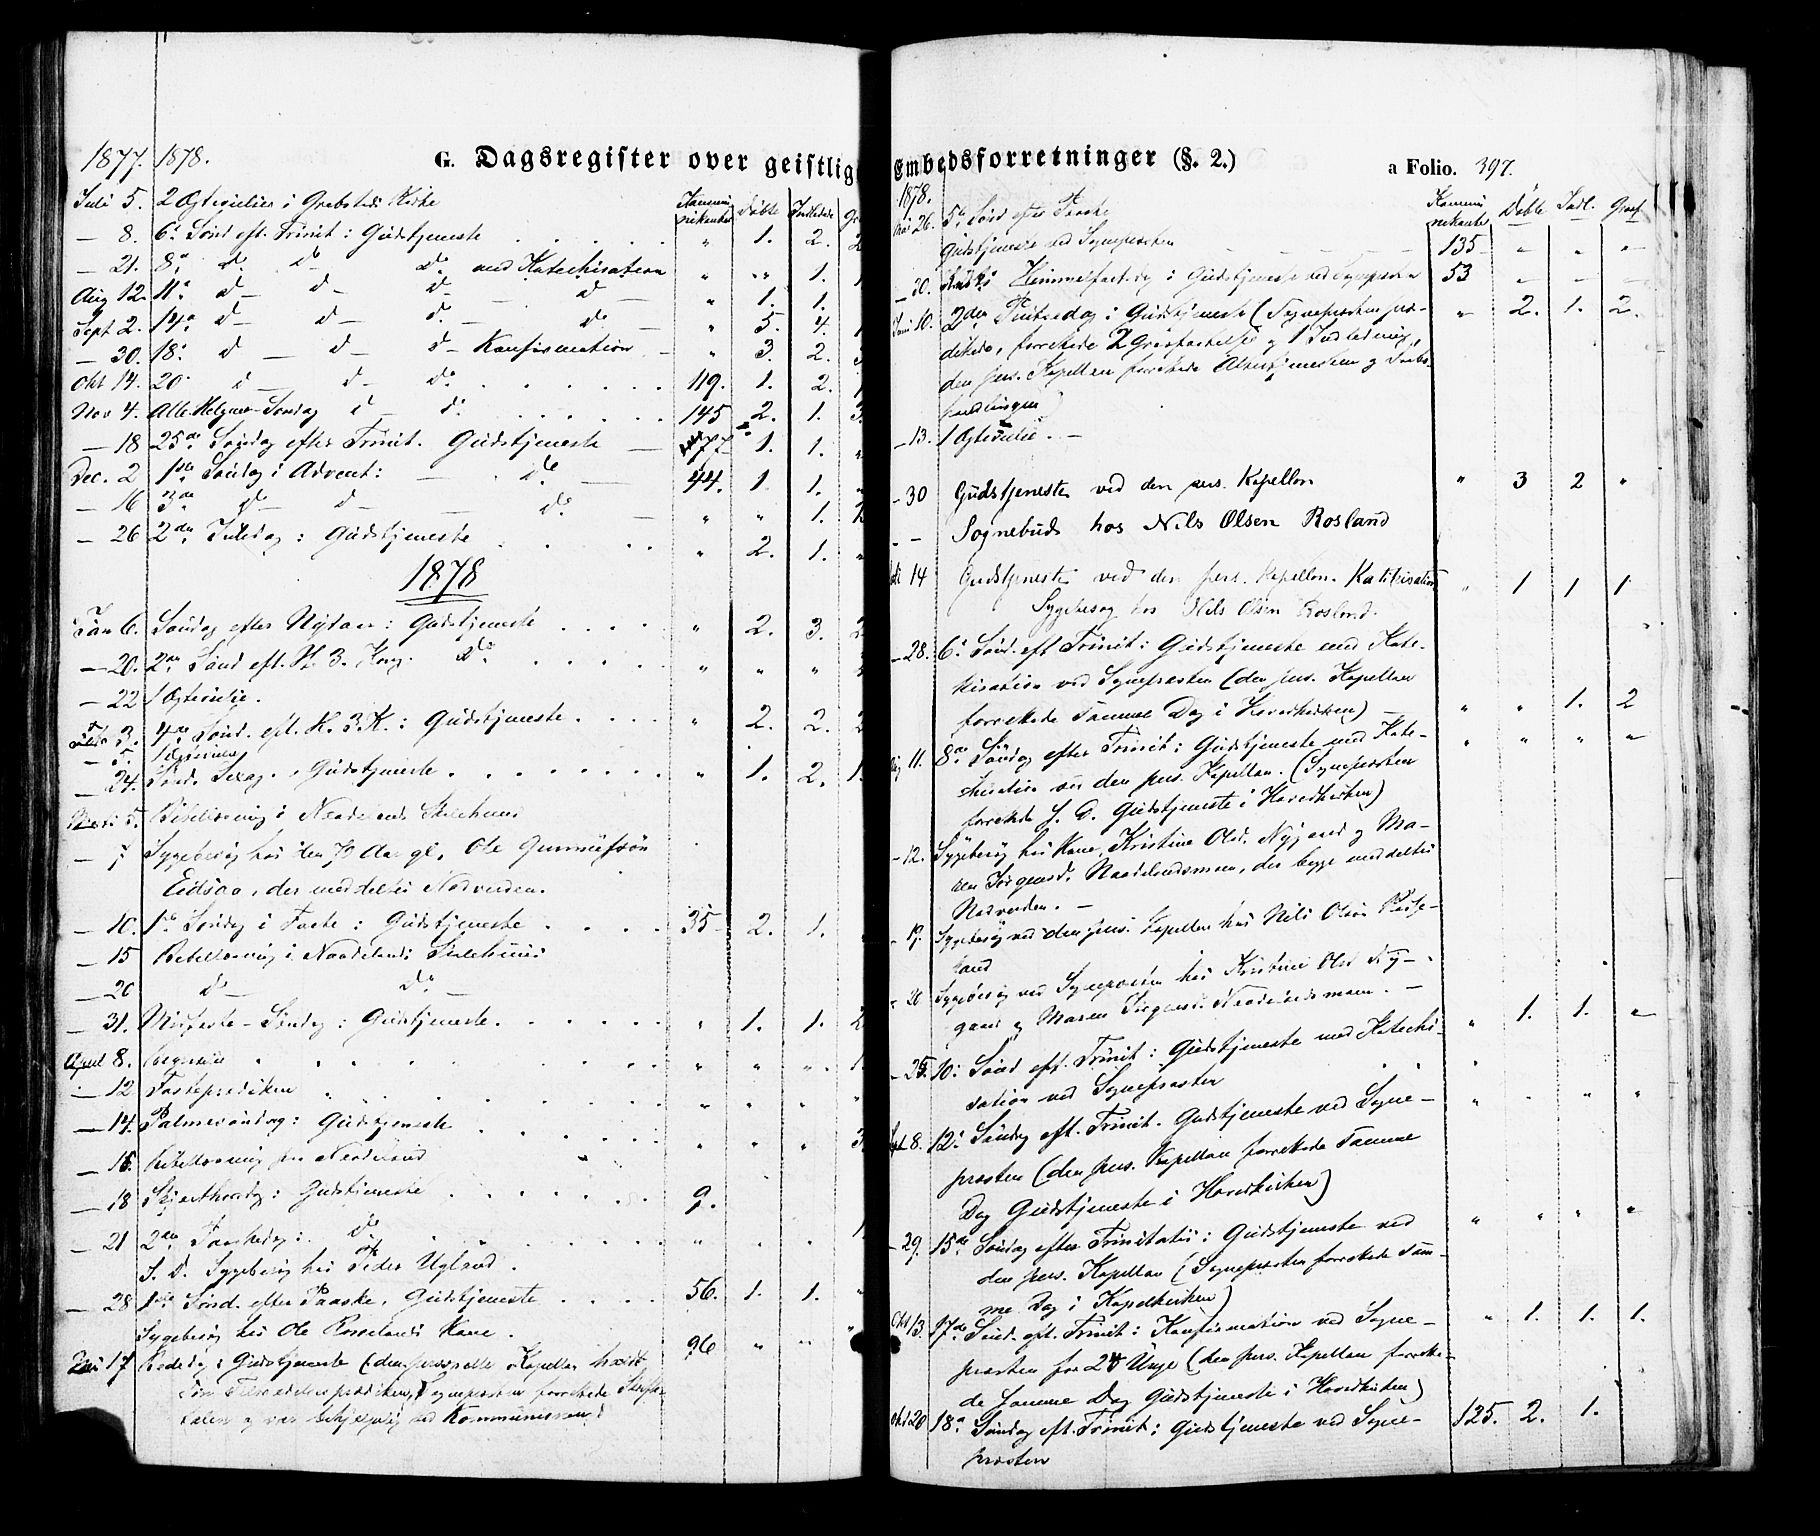 1877. 1878.
G. Dagsregister over geistlig
Kommunikanter Döbte Indledede
Juli 5. 2 Ægtevielser i Grebsteds Kirke
— 8. 6te Sönd. eft. Trinit: Gudstjeneste „ 1. 2. 2
— 21. 8de do do do med Katechisation „ „ 1. 1
Aug 12. 11te d— d— d— d— „ 1. 1.
Sept 2. 14de d— d— d— do „ 5. 4. 1
— 30. 18de d — d— d— Konfirmation „ 3. 2. 3
Okt 14. 20 d— d— do 119. 1. 2. 1
Nov 4. Alle Helgens-Söndag d— do 145 2. 1. 3
— 18 25de Söndag efter Trinit. Gudstjeneste 77 1. 1. „
Dec. 2 1ste Söndag i Advent: — do 44. 1. 1.
— 16 3de d— d— — do „ „ 1.
— 26 2den Juledag: Gudstjeneste „ 2. 1. „
1878
Jan 6. Söndag efter Nytaar: Gudstjeneste „ 2. 3. 2
— 20. 2den Sönd eft. H. 3. Kong. do „ „ „
— 22 1 Ægtevielse.
Febr 3. 4de Sönd. eft. H. 3 K.: Gudstjeneste „ 2. 2. 2
— 5. 1 Ægtevielse
— 24. Sönd. Sexag. Gudstjeneste „ 1. 2. 1.
Marts 5. Bibellæsning i Naadelands Skolehuus
— 7 Sygebesög hos den 70 Aar gl. Ole Gunnufsön
Eidsaa, der meddeltes Nadverden.
— 10. 1ste Söndag i Faste: Gudstjeneste 35 2. 1.
— 15 Bibellæsning i Naadelands Skolehuus
— 20 d— do —
— 31. Midfaste-Söndag: Gudstjeneste. „ 1. 1. 2
April 8. „ „ „ 1.
— 12 Fasteprædiken „ „ „ „
— 14. Palmesöndag: Gudstjeneste „ „ „ 3
— 15. Bibellæsning paa Naadeland
— 18 Skjærthorsdag: Gudstjeneste 9.
— 21 2den Paaskedag: do „ . . 1
S. D. Sygebesög hos Peder Ugland.
— 28 1ste Sönd. efter Paaske. Gudstjeneste 56. 1. 1. „
Sygebesög hos Ole Rosselands Kone. „
Mai 17 Bededag: Gudstjeneste (den personelle Kapellan holdt 96 „ „
sin Tiltrædelsesprædiken, Sognepræsten forrettede Skrifte-
talen og var behjelpelig ved Kommunionen)
Embedsforretninger (§. 2.) a Folio. 397.
1878. Kommunikanter Döbte Indl. Graef
Mai 26. 5te Sönd efter Paaske
Gudstjeneste ved Sognepræsten — — — 135 „ „ „
— 30. Kristi Himmelfartsdag: Gudstjeneste ved Sognepræsten 53 — — —
Juni 10. 2den Pintsedag: Gudstjeneste (Sognepræsten præ- „ 2. 1. 2.
dikede, forrettede 2 Gravfæstelse og 1 Indledning,
den pers. Kapellan forrettede Altertjenesten og Daabs-
handlingen)
— 13. 1 Ægtevielse. —
— 30 Gudstjeneste ved den pers. Kapellan „ 3 2 „
- - Sognebud hos Nils Olsen Rosland
Juli 14 Gudstjeneste ved den pers. Kapellan. Katekisation „ 1 1 1
Sygebesög hos Nils Olsen Rosland.
— 28. 6te Sönd. eft Trinit: Gudstjeneste med Kate-
kisation ved Sognepræsten (den pers. Kapellan
forrettede Samme Dag i Hovedkirken) — „ „ 1. 2
Aug 11. 8de Söndag efter Trinit: Gudstjeneste med Kate- „ „ „ „
chisation ved den pers. Kapellan. (Sognepræsten
forrettede S. D. Gudstjeneste i Hovedkirken)
— 12. Sygebesög hos Kone, Kristine Olsd. Nygaard og Ma-
ren Jörgensd. Naadelandsmoen, der begge meddeltes
Nadverden. —
- 19. Sygebesög ved den pers. Kapellan hos Nils Olsön Rosse-
land
- 20 Sygebesög ved Sognepræsten hos Kristine Olsd Ny-
gaard og Maren Jörgensd. Naadelandsmoen. —
— 25. 10de Sönd eft. Trinit: Gudstjeneste med Katechi- „ 1. 1. „
sation ved Sognepræsten
Sept 8. 12te Söndag eft. Trinit. Gudstjeneste ved Sogne- „ „ „ „
præsten (den pers. Kapellan forrettede Samme
Dag Gudstjeneste i Hovedkirken)
— 29. 15de Söndag efter Trinitatis: Gudstjeneste ved „ „ „ „
den pers. Kapellan (Sognepræsten forrettede Sam-
me Dag i Kapelkirken)
Okt 13. 17de Sönd. eft. Trinit: Konfirmation ved Sogne- „ 1. 1. 1.
præsten for 24 Unge (den pers. Kapellan forrette-
de Samme Dag Gudstjeneste i Hovedkirken)
Okt 20 18de Söndag eft. Trinit: Gudstjeneste ved Sogne- 125. 2. 1.
præsten